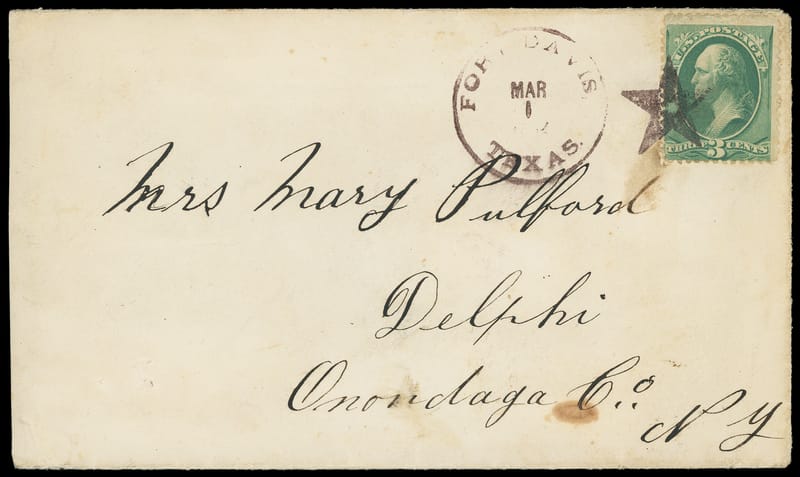 FORT DAVIS.
MAR
1
TEXAS.
U.S. POSTAGE
THREE 3 CENTS
Mrs Mary Pulford
Delphi
Onondaga Co.
N Y